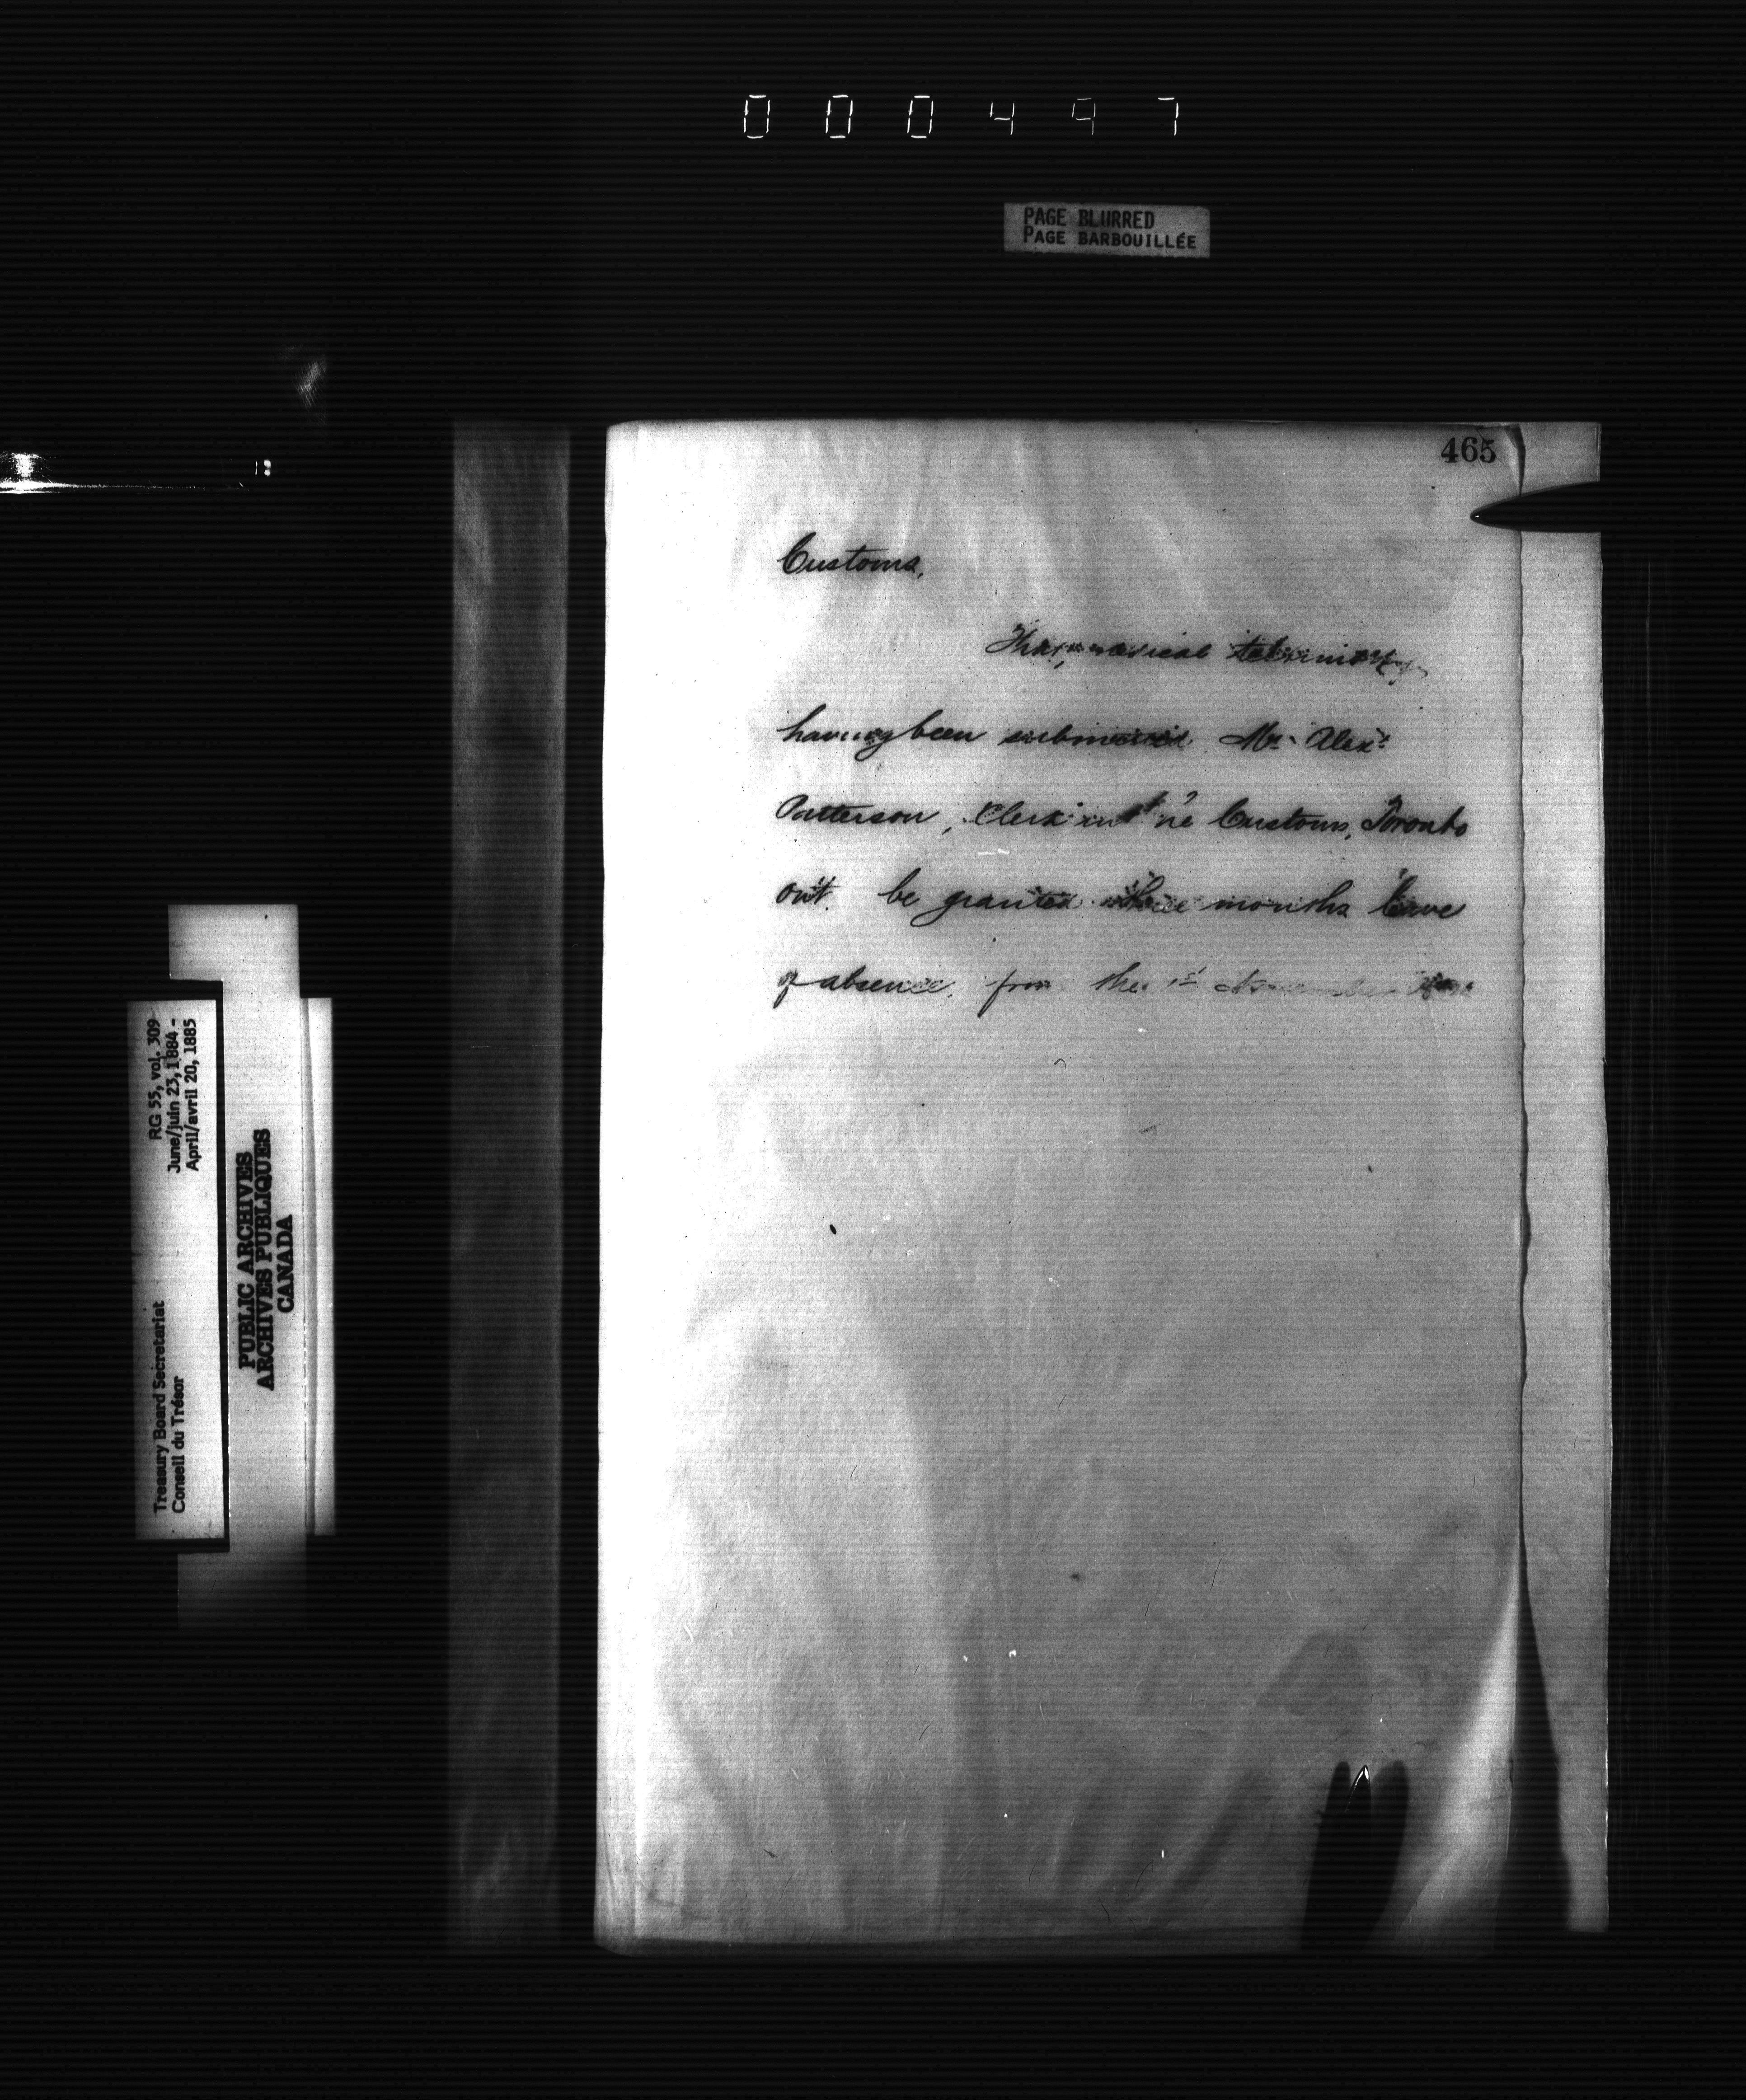 000497
PAGE BLURRED
PAGE BARBOUILLÉE
465
Customs.
That, medical testimony
having been submitted Mr. Alexr
Patterson, Clerk in the Customs, Toronto
Ont. be granted three months leave
of absence, from the 1st November
RG 55, vol. 309
June/juin 23, 1884 -
April/avril 20, 1885
Treasury Board Secretariat
Conseil du Trésor
PUBLIC ARCHIVES
ARCHIVES PUBLIQUES
CANADA